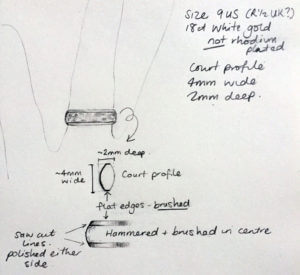 Size 9 US (R½ UK?)
18ct White gold
not rhodium
plated
Court profile
4mm wide
2mm deep.
~2mm deep
~4mm
wide
Court profile
flat edges - brushed
saw cut
lines.
polished either
side.
Hammered + brushed in centre